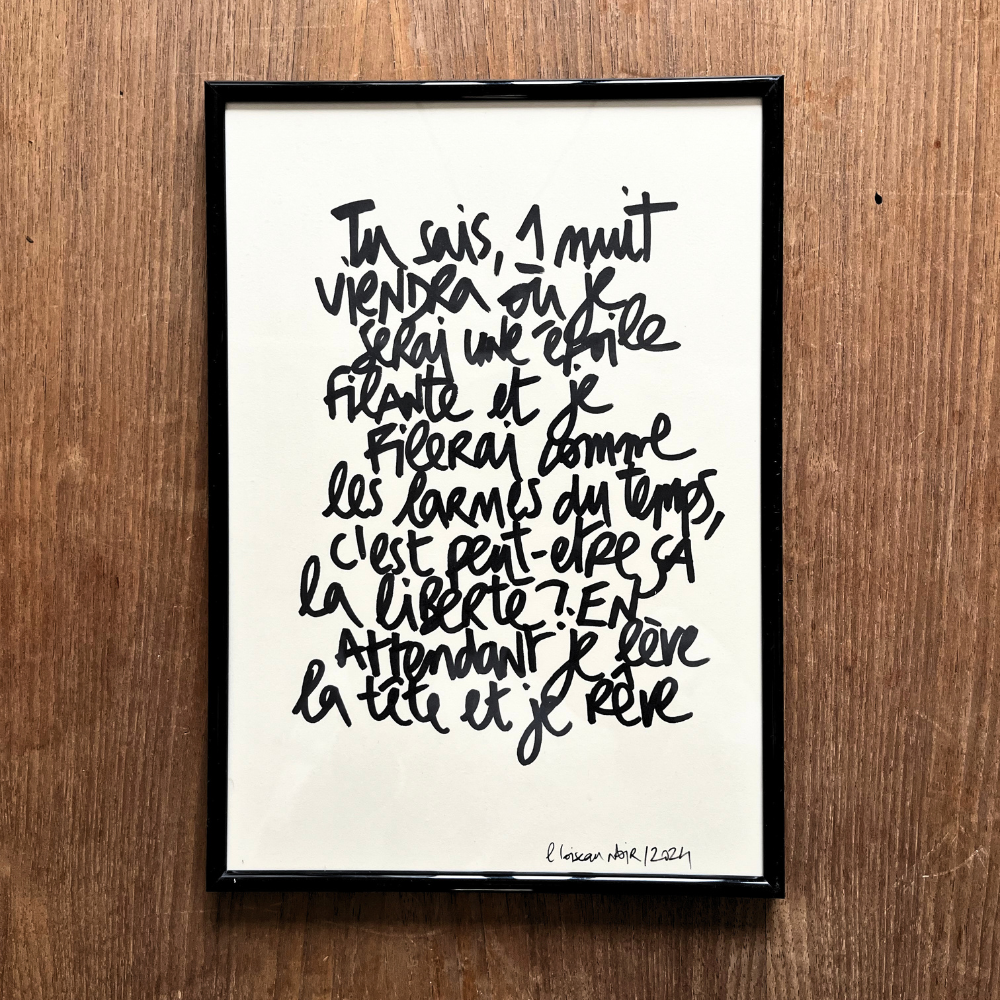 Tu sais, 1 nuit
viENDRA où je
serai une étoile
filANte et je
filerai comme
les larmes du temps,
c'est peut-etre ça
la liBerté ? EN
Attendant je lève
la tête et je Rêve
l'oiseau noir/2024